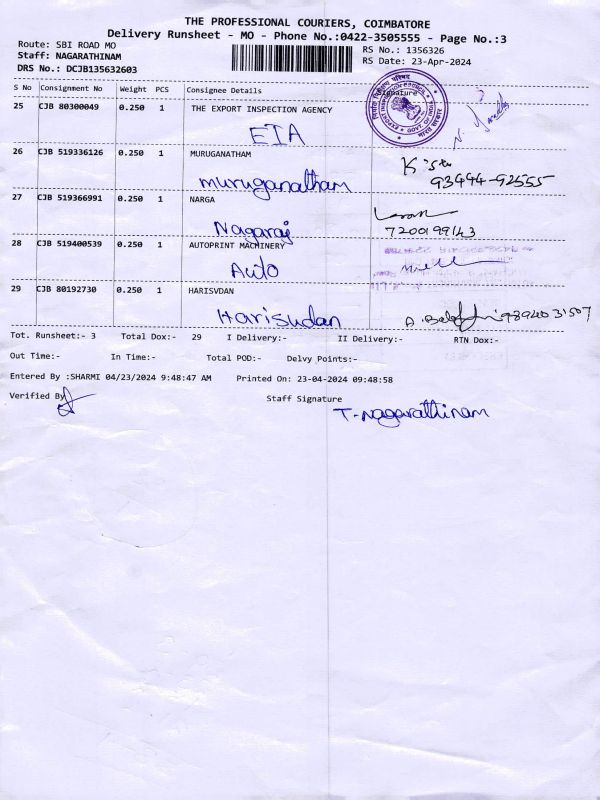 THE PROFESSIONAL COURIERS, COIMBATORE
Delivery Runsheet - MO - Phone No.:0422-3505555 - Page No.:3
Route: SBI ROAD MO
RS No.: 1356326
Staff: NAGARATHINAM
RS Date: 23-Apr-2024
DRS No.: DCJB135632603
S No Consignment No Weight PCS Consignee Details Signature
25 CJB 80300049 0.250 1 THE EXPORT INSPECTION AGENCY
EIA
26 CJB 519336126 0.250 1 MURUGANATHAM
muruganatham
93444-92555
27 CJB 519366991 0.250 1 NARGA
Nagaraj
7200199143
28 CJB 519400539 0.250 1 AUTOPRINT MACHINERY
Auto
29 CJB 80192730 0.250 1 HARISVDAN
Harisudan
9894031507
Tot. Runsheet:- 3 Total Dox:- 29 I Delivery:- II Delivery:- RTN Dox:-
Out Time:- In Time:- Total POD:- Delvy Points:-
Entered By :SHARMI 04/23/2024 9:48:47 AM Printed On: 23-04-2024 09:48:58
Verified By
Staff Signature
T-Nagarathinam